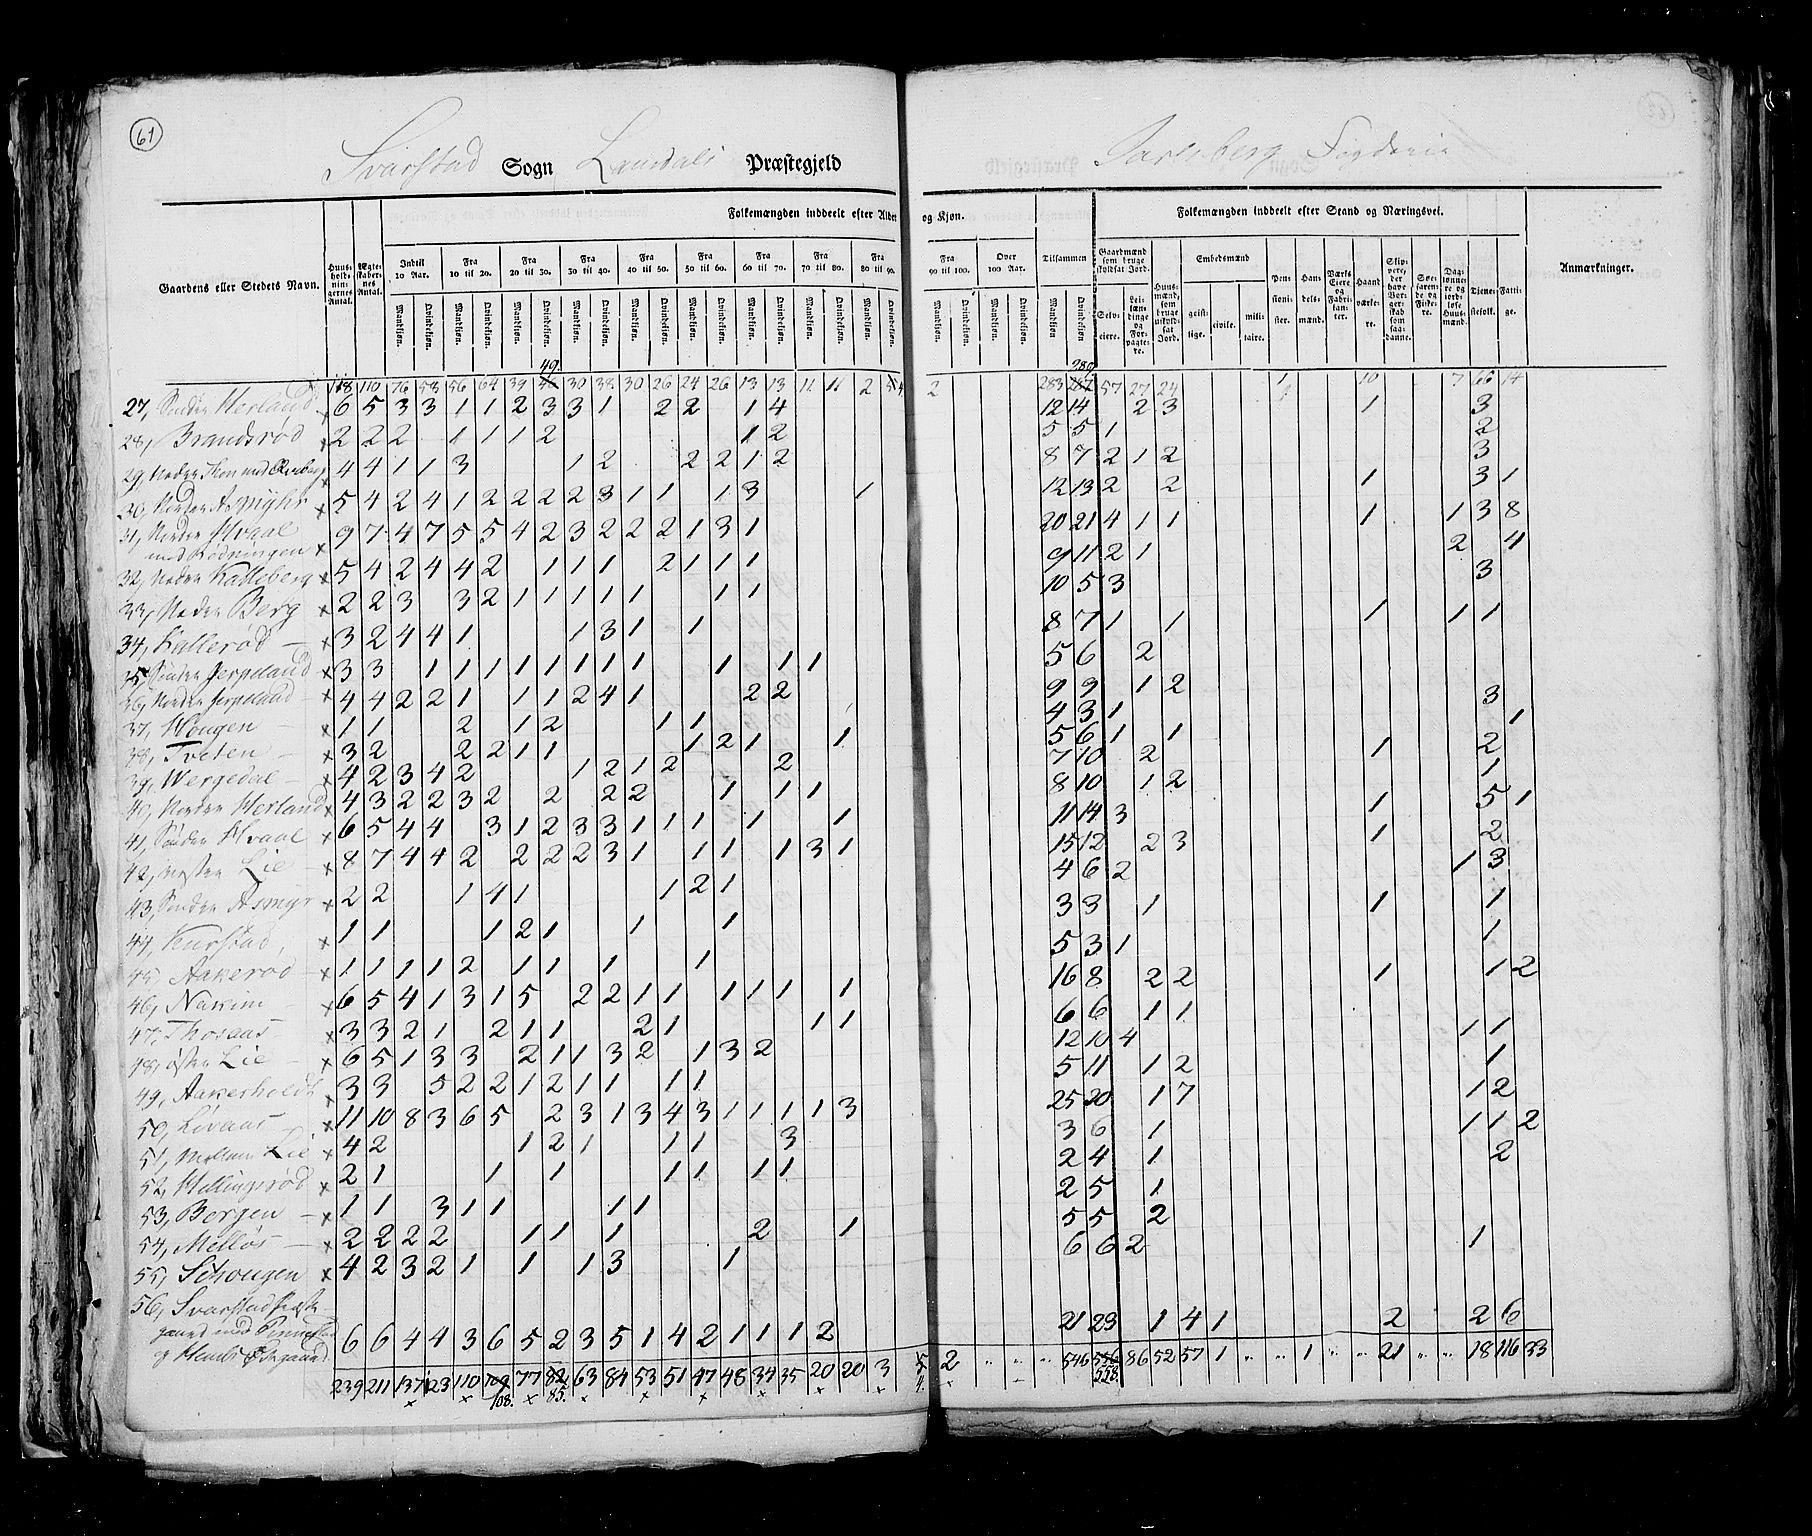 61
Svarstad Sogn Laurdals Præstegjeld
Jarlsberg Fogderie
Gaardens eller Stedets Navn.
Huus-holdningernes Antal.
Ægteskabernes Antal.
Folkemængden inddeelt efter Alder og Kjøn.
Folkemængden inddeelt efter Stand og Næringsvei.
Anmærkninger.
Indtil 10 Aar. Fra 10 til 20. Fra 20 til 30. Fra 30 til 40. Fra 40 til 50. Fra 50 til 60. Fra 60 til 70. Fra 70 til 80. Fra 80 til 90. Fra 90 til 100. Over 100 Aar. Tilsammen
Mandkjøn. Qvindekjøn.
Gaardmænd som bruge skyldsat Jord. Selveiere. Leilændinge og Forpagtere.
Huusmænd, som bruge uskyldsat Jord.
Embedsmænd geistlige. civile. militaire.
Pensionister. Handelsmænd. Værks Eiere og Fabrikanter. Haandværkere.
Skippere, der have Borgerskab som saadanne.
Søefarende og Fiskere.
Daglønnere og jordløse Huusmænd.
Tjenestefolk. Fattige.
118 110 76 53 56 64 39 46 49. 30 38 30 26 24 26 13 13 11 11 2 5 4 2 283 287 289. 57 27 24 1 10 7 66 14
27, Sønder Herland 6 5 3 3 1 1 2 3 3 1 2 2 1 4 12 14 2 3 1 3
28, Brandsrød 2 2 2 1 1 1 2 1 2 5 5 1 2
29, Neder 4 4 1 1 3 1 2 2 2 1 2 8 7 2 1 2 3
30, Nordre Asmyhr 5 4 2 4 1 2 2 2 2 3 1 1 1 3 1 12 13 2 2 1 3 1
31, Nordre Hvaal med Rødningen 9 7 4 7 5 5 4 2 3 2 2 2 1 3 1 20 21 4 1 1 1 1 3 8
32, Neder Kalleberg 5 4 2 4 4 2 1 1 1 2 1 1 1 9 11 2 1 2 4
33, Neder Berg 2 2 3 3 2 1 1 1 1 1 1 1 10 5 3 3
34, Kallerød 3 2 4 4 1 1 3 1 1 8 7 1 1 1 1 1
35, Sønder Jerpeland 3 3 1 1 1 1 1 1 1 1 1 1 1 5 6 2
36, Nordre Jerpeland 4 4 2 2 1 1 1 2 4 1 2 2 9 9 1 2 3
37, Hougen 1 1 2 1 2 1 1 4 3 1 1
38, Tveten 3 2 2 2 1 1 1 2 1 1 5 6 1 1 1 2
39, Wergedal 4 2 3 4 2 1 2 1 2 2 7 10 2 1
40, Nordre Herland 4 3 2 2 3 2 2 2 2 1 1 1 8 10 1 2 1 5 1
41, Sønder Hvaal 6 5 4 4 3 1 2 3 3 1 1 1 1 1 11 14 3 1 2
42, Vestre Lie 8 7 4 4 2 2 2 2 3 1 1 1 1 3 1 15 12 2 3 1 3
43, Sønder Asmyr 2 2 1 4 1 1 2 1 4 6 2 1
44, 1 1 1 2 1 1 1 3 3 1 1 1
45, Aakerød 1 1 1 1 2 1 1 1 1 5 3 1
46, Nakkim 6 5 4 1 3 1 5 2 2 1 1 1 1 1 1 16 8 2 2 1 1 2
47, Thoraas 3 3 2 1 2 1 1 2 1 1 1 6 6 1 1 1 1
48, østre Lie 6 5 1 3 3 2 1 1 3 2 1 3 2 12 10 4 1
49, Aakerholdt 3 3 5 2 2 1 2 1 1 1 1 5 11 1 2 1 2
50, Livaas 11 10 8 3 6 5 2 3 1 3 4 3 1 1 1 1 3 25 20 1 7 1 1 2
51, Mellem Lie 4 2 1 2 1 1 1 3 3 6 1 2
52, Hellingsrød 2 1 1 1 1 1 1 1 2 4 1
53, Bergen 1 1 3 1 1 1 1 2 5 1
54, Melløs 2 2 2 2 1 1 1 2 1 5 5 2 1
55, Schougen 4 2 3 2 1 1 1 3 1 6 6 2
56, Svarstad Præstegaard med 6 6 4 4 3 6 5 2 3 5 1 4 2 1 1 1 2 21 23 1 4 1 2 2 6
239 211 137 123 110 109 108. 77 82 85. 63 84 53 51 47 48 34 35 20 20 3 5 4. 2 " " " 546 556 558. 86 52 57 1 " " 1 " " 21 " " 18 116 33